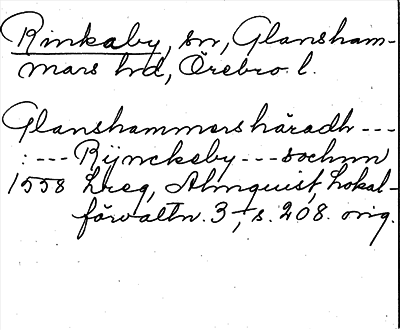 Rinkaby, sn, Glansham-
mars hd, Örebro l.
Glanshammers häradh ---
: --- Rijnckeby --- sochnn
1558 Lreg, Almquist, Lokal-
förvaltn. 3, s. 208. orig.